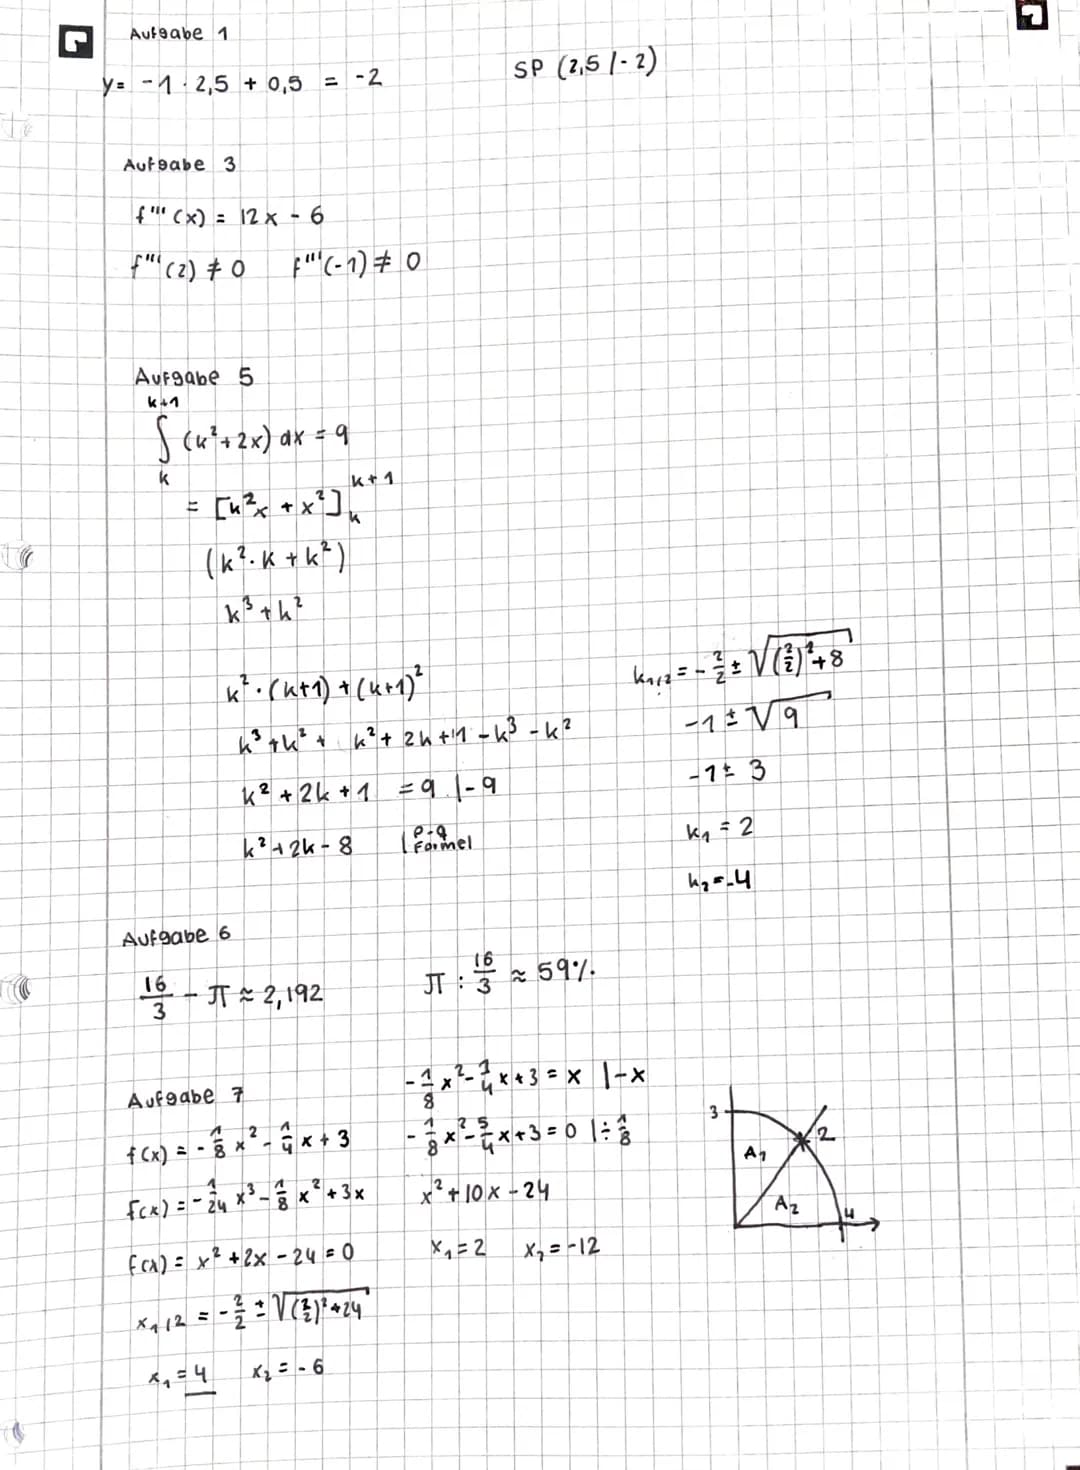 Aufgabe 1
y = -1 · 2,5 + 0,5 = -2
SP (2,5 / -2)
Aufgabe 3
f'''(x) = 12x - 6
f'''(2) ≠ 0 f'''(-1) ≠ 0
Aufgabe 5
k+1
∫ (k²+2x) dx = 9
k
= [k²x + x²]
k+1
k
(k² · k + k²)
k³ + k²
k² · (k+1) + (k+1)²
k³ + k² + k² + 2k + 1 - k³ - k²
k² + 2k + 1 = 9 |-9
k² + 2k - 8 | p-q Formel
k₁,₂ = -2/2 ± √((2/2)² + 8)
-1 ± √9
-1 ± 3
k₁ = 2
k₂ = -4
Aufgabe 6
16/3 - π ≈ 2,192
π : 16/3 ≈ 59%
Aufgabe 7
f(x) = -1/8 x² - 1/4 x + 3
F(x) = -1/24 x³ - 1/8 x² + 3x
f(x) = x² + 2x - 24 = 0
x₁/₂ = -2/2 ± √((2/2)² + 24)
x₁ = 4 x₂ = -6
-1/8 x² - 1/4 x + 3 = x |-x
-1/8 x² - 5/4 x + 3 = 0 | ÷ 1/8
x² + 10x - 24
x₁ = 2 x₂ = -12
3
2
A₁
A₂
4